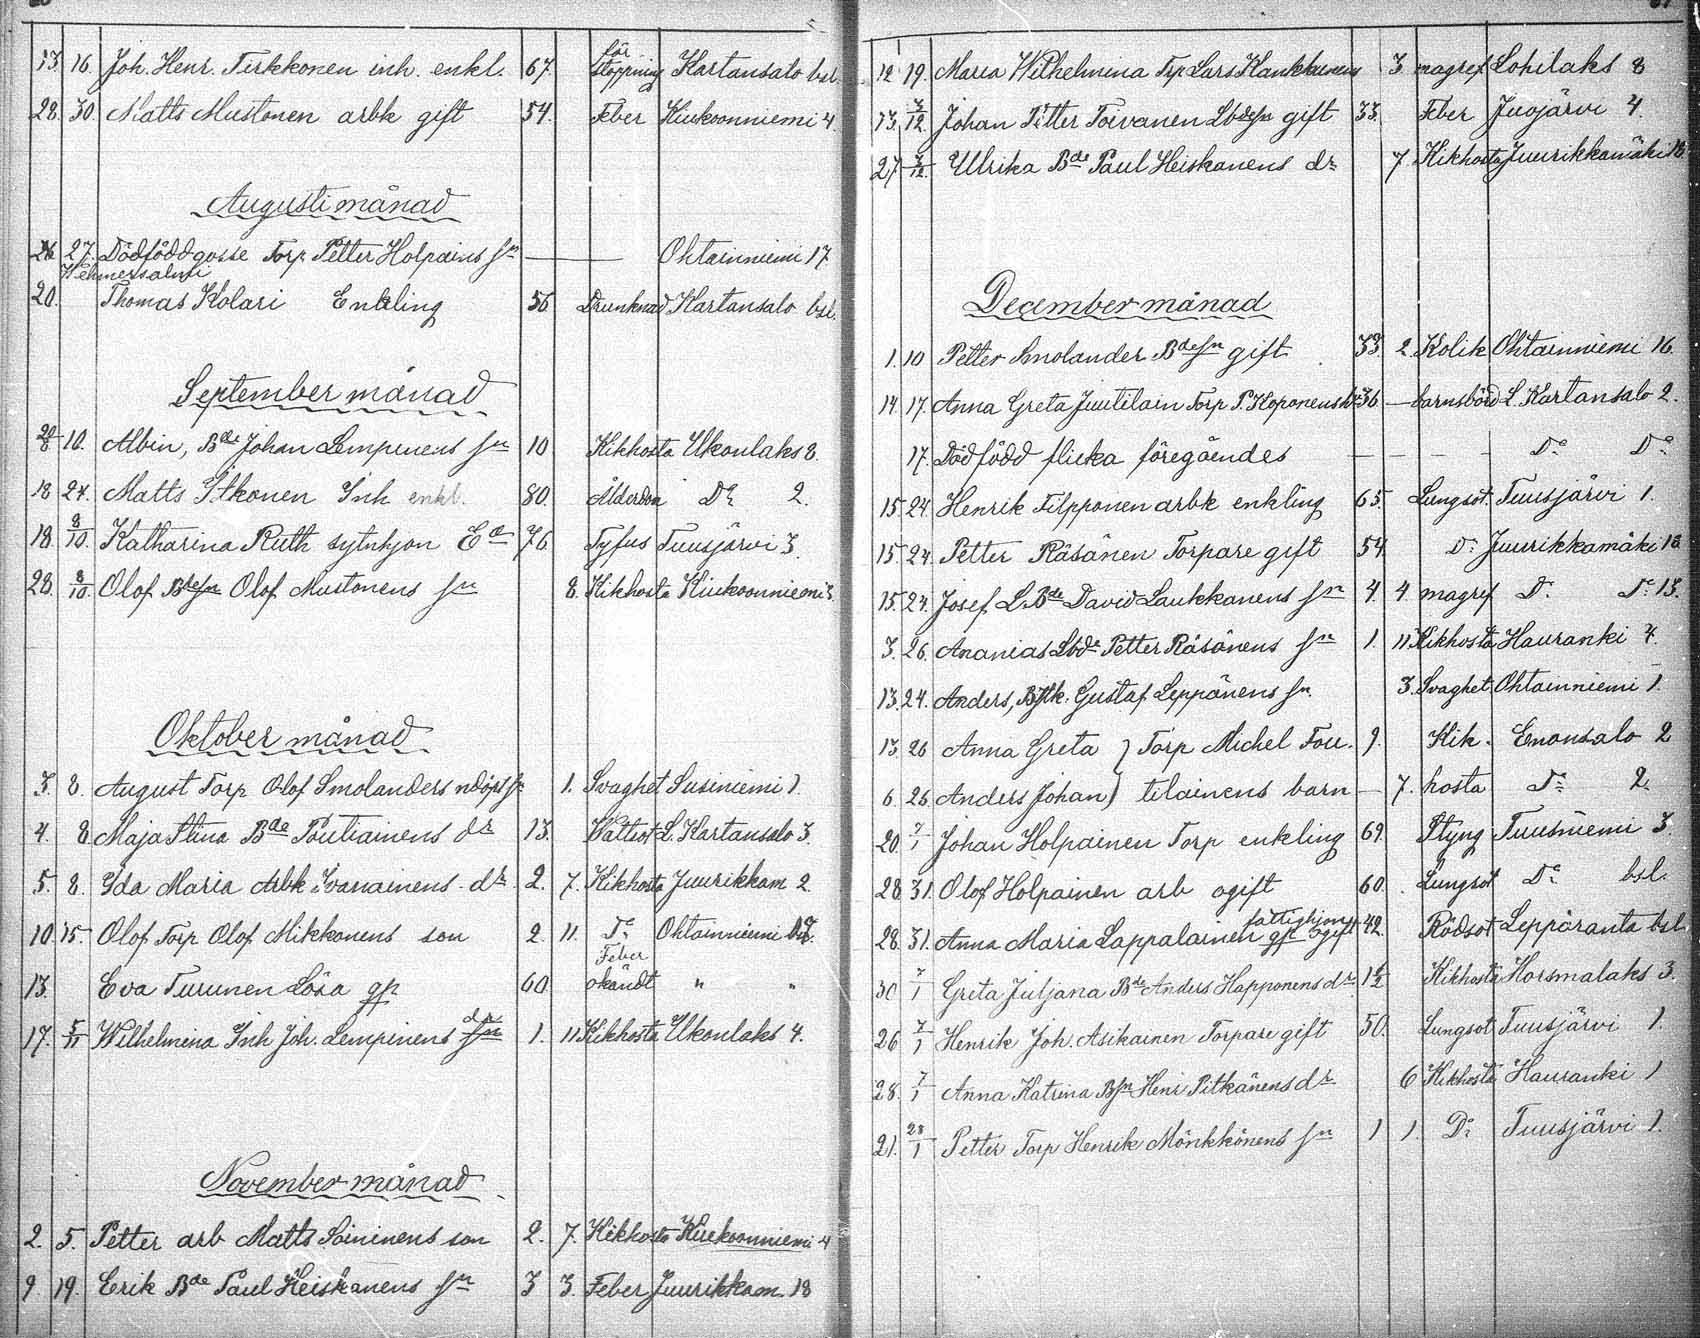 13. 16. Joh. Henr. Tirkkonen inh. enkl. 67. för stoppning Kartansalo bsl.
28. 30. Matts Mustonen arbk gift 54. Feber Kiukoonniemi 4.
Augusti månad
26 27. Dödfödd gosse Torp. Petter Holpains sn — Ohtainniemi 17.
Wehmersalmi
20. Thomas Kolari Enkling 56 Drunknad Kartansalo bsl.
September månad
10. Albin, Bde Johan Lempinens sn 10 Kikhosta Ukonlaks 8.
18 24. Matts Itkonen Inh enkl. 80. Ålderdom Do 2.
18. 8/10. Katharina Ruth sytnhjon Ea 76 Tyfus Tuusjärvi 3.
28. 8/10. Olof Bdesn Olof Mustonens sn 8. Kikhosta Kiukoonniemi 3.
Oktober månad
3. 8. August Torp Olof Smolanders ndöpt sn 1. Svaghet Susiniemi 1.
4. 8. Maja Stina Bde Poutiainens dr 13. Wattsot L. Kartansalo 3.
5. 8. Ida Maria Arbk Ivanainens dr 2. 7. Kikhosta Juurikkam 2.
10. 15. Olof Torp Olof Mikkonens son 2. 11. Do Ohtainniemi
13. Eva Turunen Lösa qp 60. Feber okändt " "
17. 5/11 Wilhelmina Inh Joh. Lempinens dr 1. 11 Kikhosta Ukonlaks 4.
November månad
2. 5. Petter arb Matts Soininens son 2. 7. Kikhosta Kiukoonniemi 4
9 19. Erik Bde Paul Heiskanens sn 3 3. Feber Juurikkam 18
12 19. Maria Wilhelmina Trp Lars Kankkunens 3 magref Lohilaks 8
13. 3/12. Johan Petter Toivanen Lbdesn gift 33. Feber Juojärvi 4.
27 3/12. Ulrika Bde Paul Heiskanens dr 7 Kikhosta Juurikkamäki 18
December månad
1. 10 Petter Smolander Bdesn gift 33 2. Kolik Ohtainniemi 16.
14. 17. Anna Greta Juutilain Torp P. Koponens h. 36 — barnsbörd L. Kartansalo 2.
17. Död född flicka föregåendes — — — — Do Do
15. 24. Henrik Filpponen arbk enkling 65. Lungsot. Tuusjärvi 1.
15. 24. Petter Räsänen Torpare gift 54. Do Juurikkamäki 13.
15. 24. Josef L. Bde David Laukkanens sn 4. 4 magref Do Do 13.
3. 26. Ananias Lbde Petter Räsänens sn 1. 11 Kikhosta Hauranki 4.
13. 24. Anders, Gustaf Leppänens sn 3. Svaghet Ohtainniemi 1.
13 26 Anna Greta } Torp Michel Tou- 9. Kik- Enonsalo 2
6. 26 Anders Johan } tilainens barn — 7. hosta Do 2.
20 7/1 Johan Holpainen Torp enkling 69. Styng Tuusniemi 3.
28 31. Olof Holpainen arb ogift 60. Lungsot Do bsl.
28. 31. Anna Maria Lappalainen fattighjon ogift 42. Rödsot Leppäranta bsl
30 7/1 Greta Juljana Bde Anders Happonens dr. 1 1/2 Kikhosta Horsmalaks 3.
26 7/1 Henrik Joh. Asikainen Torpare gift 50. Lungsot Tuusjärvi 1.
28. 7/1 Anna Katrina Bsn Henr Pitkänens dr 6 Kikhosta Hauranki 1
21. 28/1 Petter Torp Henrik Mönkkönens sn 1 1. Do Tuusjärvi 1.